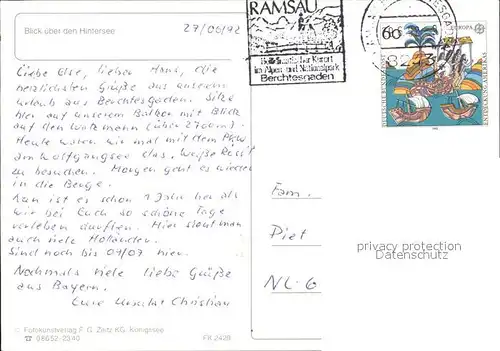 Blick über den Hintersee
27/06/92
Liebe Else, lieber Hans, die
herzlichsten Grüße aus unserem
Urlaub aus Berchtesgaden. Sitze
hier auf unserem Balkon mit Blick
auf den Watzmann (über 2700m).
Heute waren wir mal mit dem PKW
am Wolfgangsee das "Weiße Röss'l"
zu besuchen. Morgen geht es wieder
in die Berge.
Nun ist es schon 1 Jahr her als
wir bei Euch so schöne Tage
verleben durften. Hier sieht man
auch viele Holländer.
Sind noch bis 04/07 hier.
Nochmals viele liebe Grüße
aus Bayern.
Eure Ursula Christian
© Fotokunstverlag F. G. Zeitz KG, Königssee
☎ 08652-2340 FK 2429
RAMSAU
Heilklimatischer Kurort
im Alpen- und Nationalpark
Berchtesgaden
60
EUROPA
DEUTSCHE BUNDESPOST
ENTDECKUNG AMERIKAS
Fam.
Piet
NL-6
privacy protection
watermark